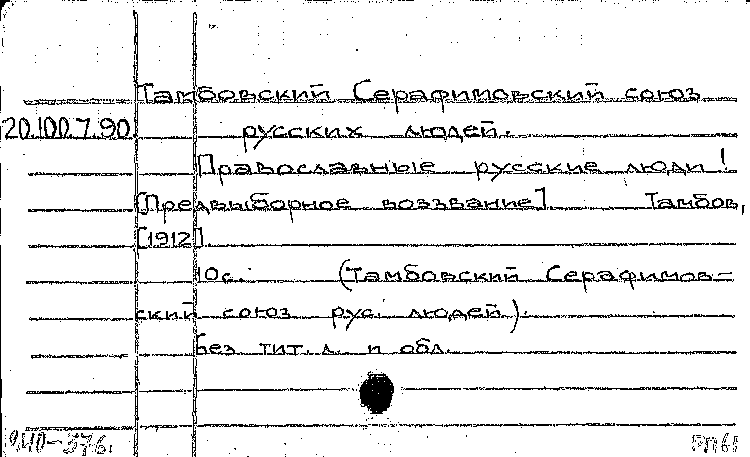 Тамбовский Серафимовский союз
20.100.7.90. русских людей.
Православные русские люди!
[Предвыборное воззвание]. Тамбов,
[1912].
10с. (Тамбовский Серафимов-
ский союз рус. людей).
Без тит. л. и обл.